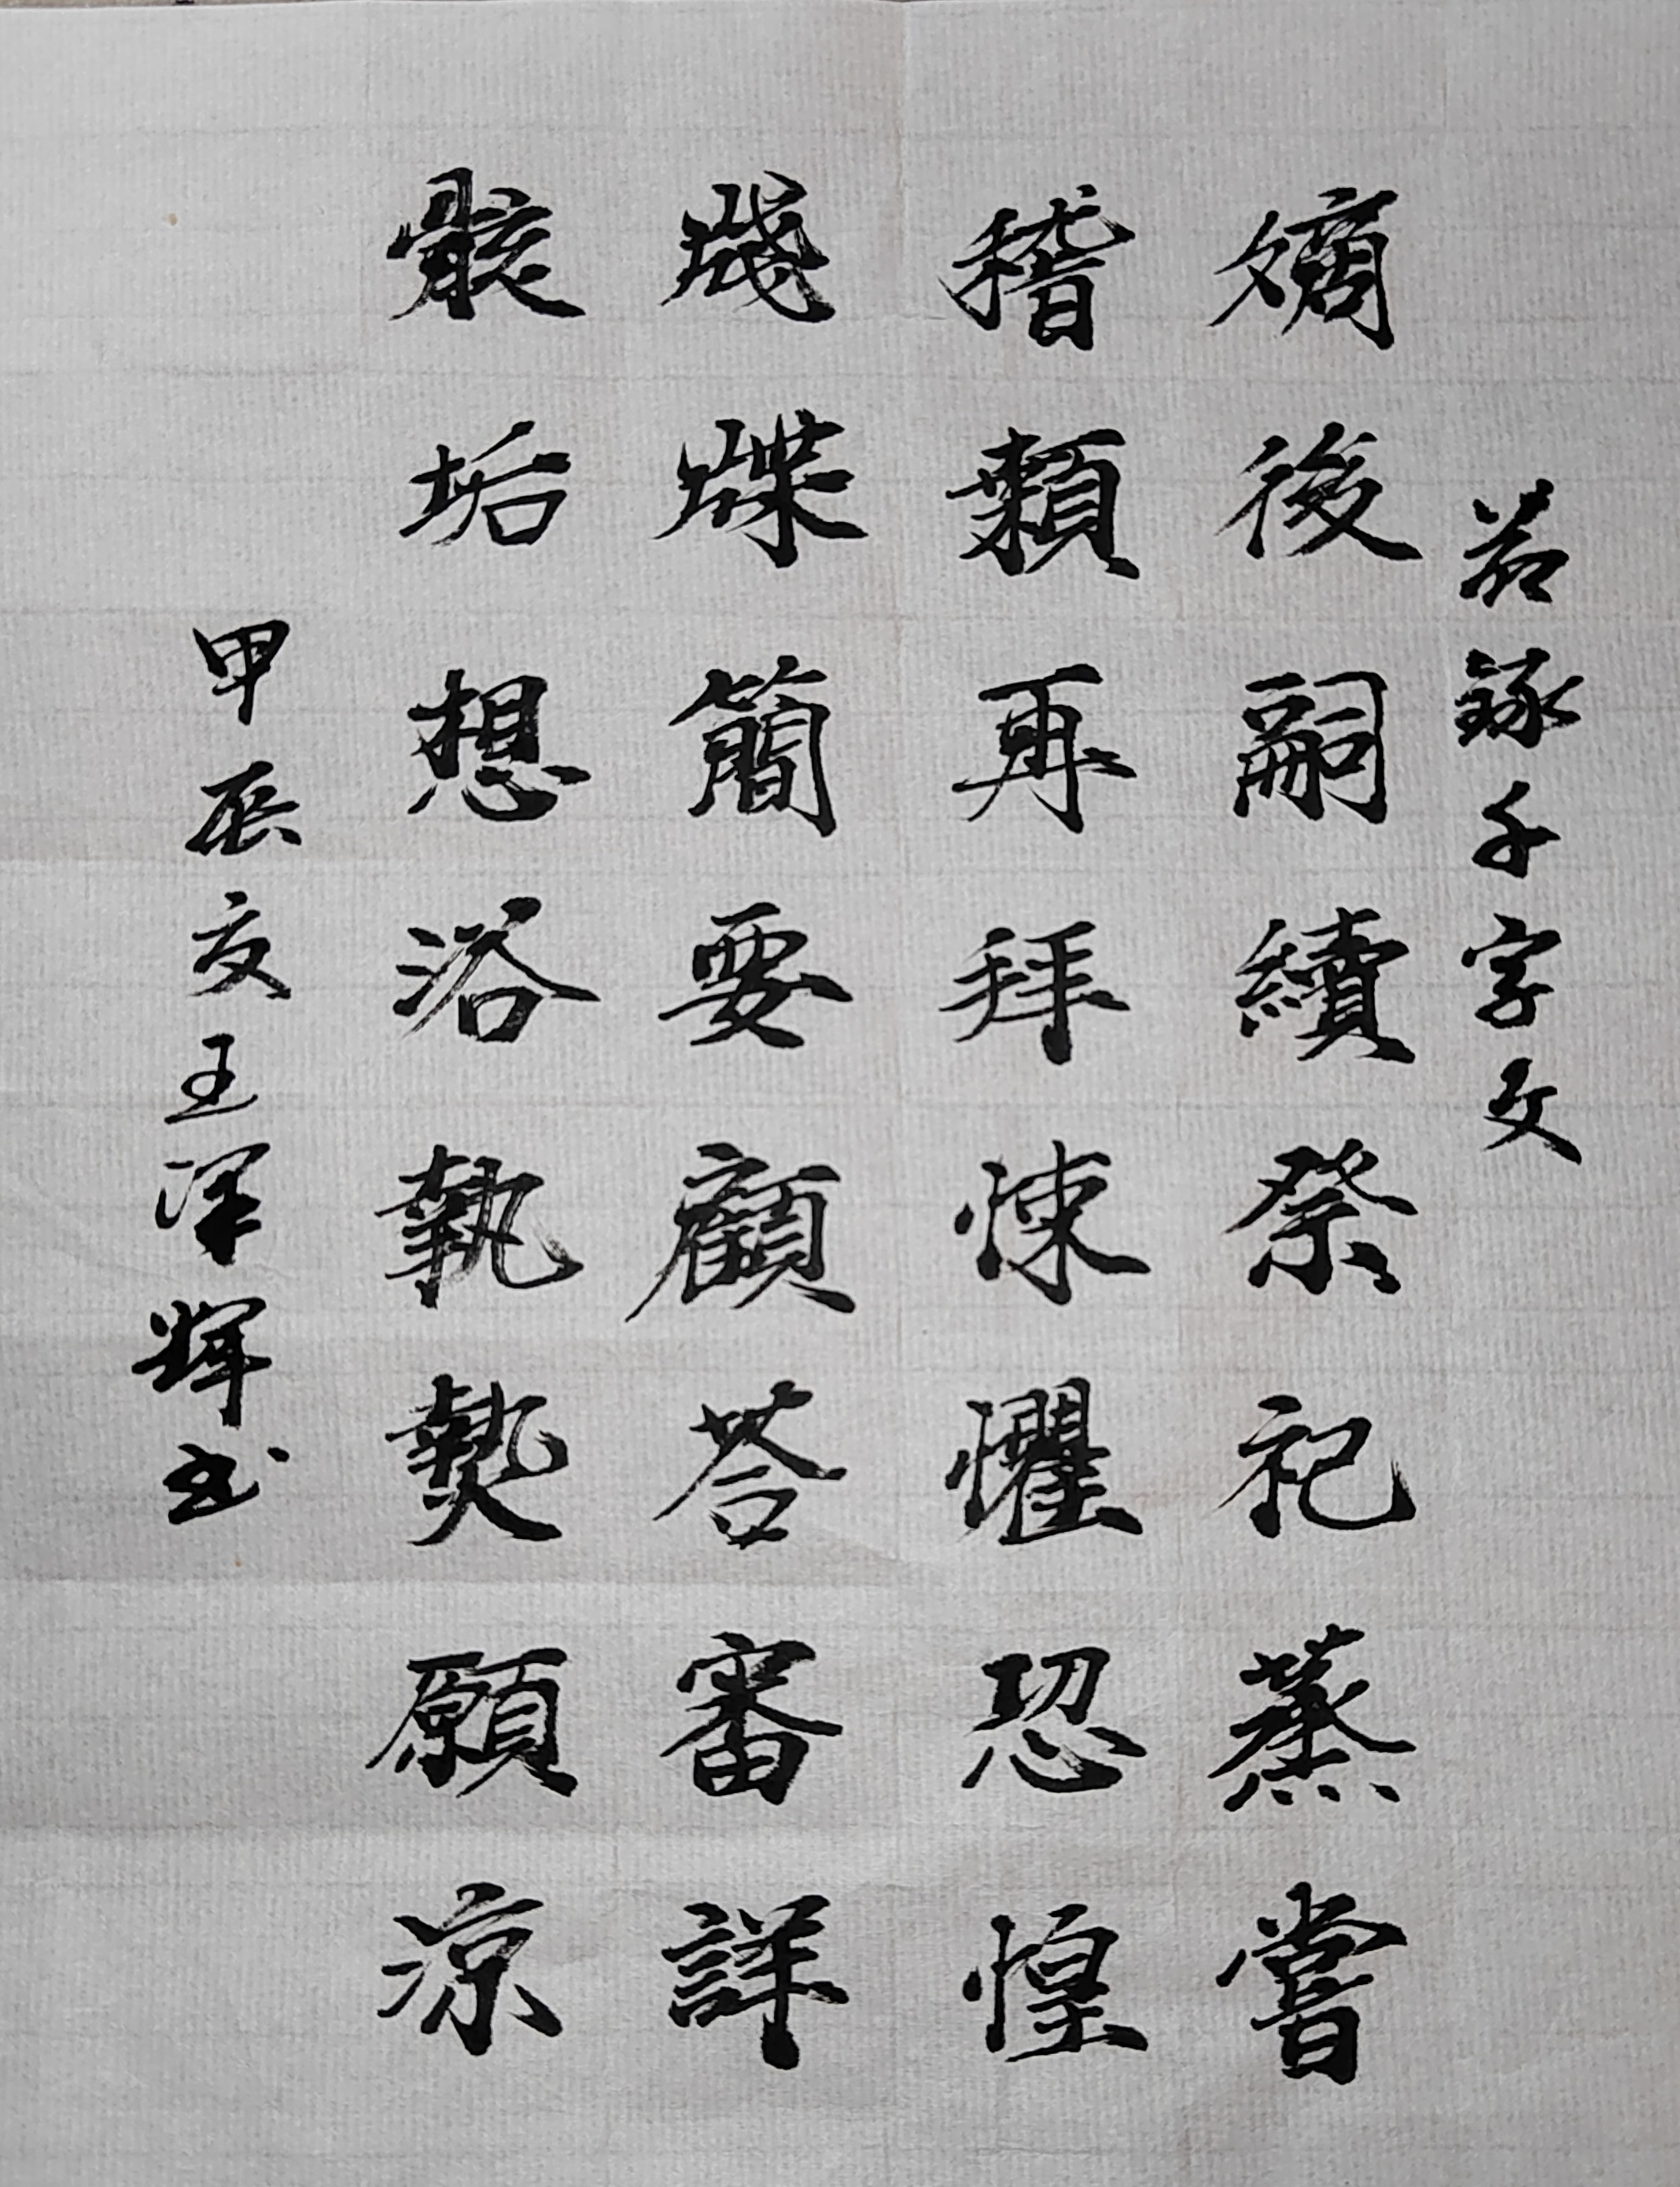 節錄千字文
嫡後嗣續祭祀蒸嘗
稽顙再拜悚懼恐惶
牋牒簡要顧荅審詳
骸垢想浴執熱願涼
甲辰夏王泽輝书